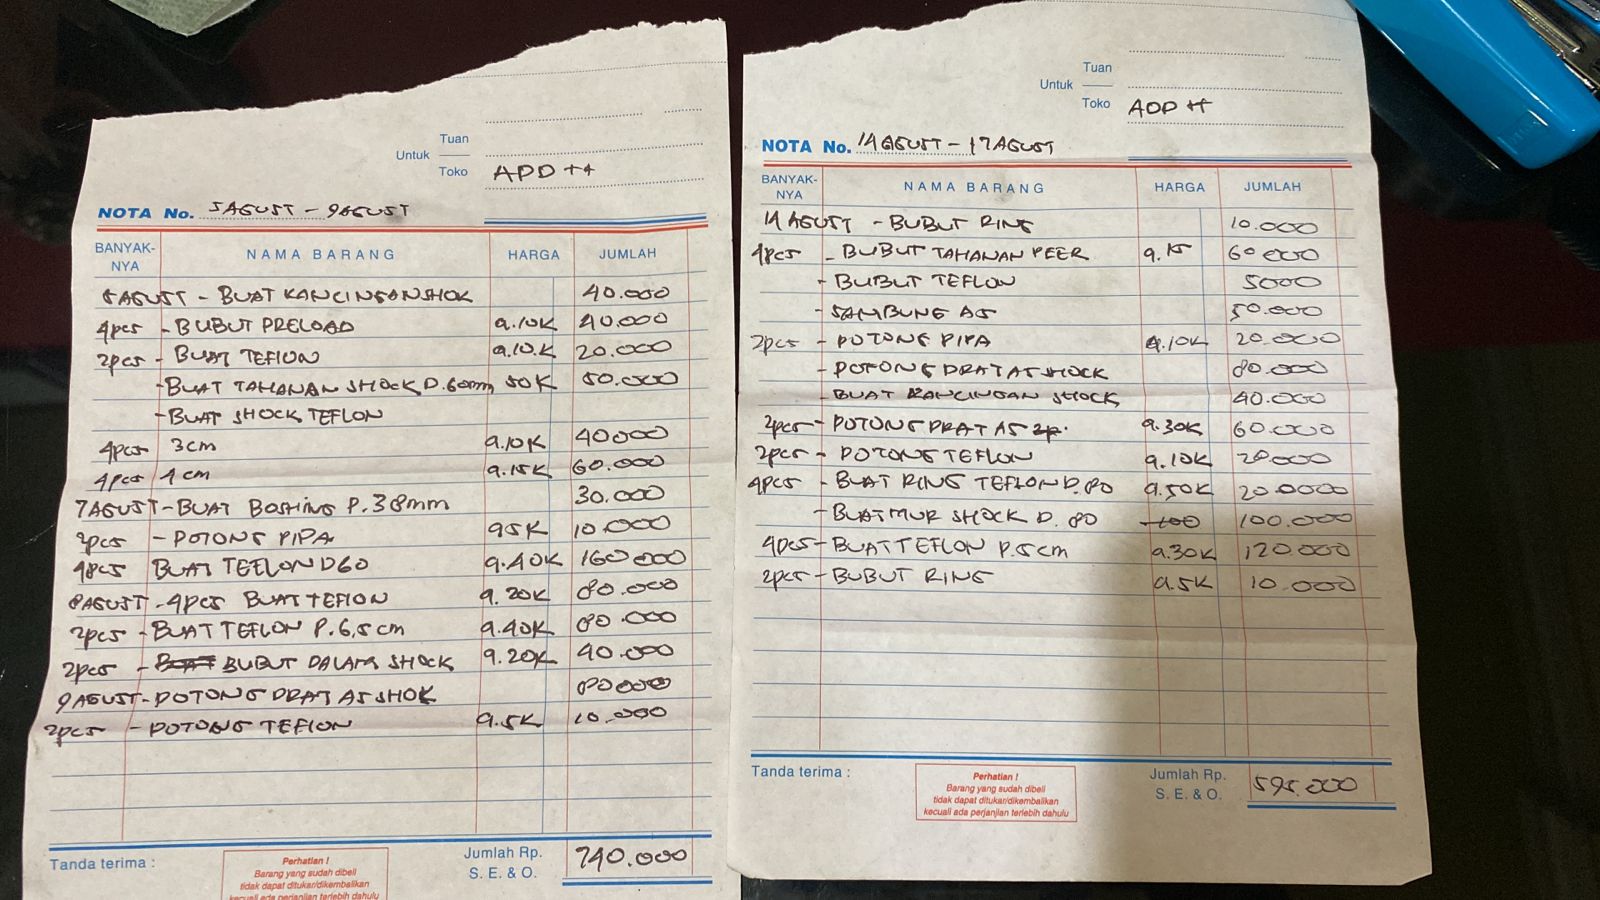 Tuan
Untuk
Toko ADD ++
NOTA No. 5 AGUST - 9 AGUST
BANYAK-NYA NAMA BARANG HARGA JUMLAH
5 AGUST - BUAT KANCINGAN SHOK 40.000
4pcs - BUBUT PRELOAD a.10K 40.000
2pcs - BUAT TEFLON a.10.K 20.000
- BUAT TAHANAN SHOCK D.60mm 50K 50.000
- BUAT SHOCK TEFLON
4pcs 3cm a.10K 40000
4pcs 4cm a.15K 60.000
7 AGUST - BUAT BOSHING P.38mm 30.000
2pcs - POTONG PIPA a5K 10.000
4pcs BUAT TEFLON D60 a.40K 160000
8 AGUST - 4pcs BUAT TEFLON a.20K 80.000
2pcs - BUAT TEFLON P.6,5cm a.40K 80.000
2pcs - BUBUT DALAM SHOCK a.20K 40.000
9 AGUST - POTONG DRAT AS SHOK 80000
2pcs - POTONG TEFLON a.5K 10.000
Tanda terima :
Perhatian !
Barang yang sudah dibeli
tidak dapat ditukar/dikembalikan
kecuali ada perjanjian terlebih dahulu
Jumlah Rp. 740.000
S. E. & O.
Tuan
Untuk
Toko ADD ++
NOTA No. 14 AGUST - 17 AGUST
BANYAK-NYA NAMA BARANG HARGA JUMLAH
14 AGUST - BUBUT RING 10.000
4pcs - BUBUT TAHANAN PEER a.15 60000
- BUBUT TEFLON 5000
- SAMBUNG AS 50.000
2pcs - POTONG PIPA a.10K 20.000
- POTONG DRAT AS SHOCK 80.000
- BUAT KANCINGAN SHOCK 40.000
2pcs - POTONG DRAT AS a.30K 60.000
2pcs - POTONG TEFLON a.10K 20.000
4pcs - BUAT RING TEFLON D.80 a.50K 20.0000
- BUAT MUR SHOCK D. 80 100 100.000
4pcs - BUAT TEFLON P.5cm a.30K 120.000
2pcs - BUBUT RING a.5K 10.000
Tanda terima :
Perhatian !
Barang yang sudah dibeli
tidak dapat ditukar/dikembalikan
kecuali ada perjanjian terlebih dahulu
Jumlah Rp. 595.000
S. E. & O.